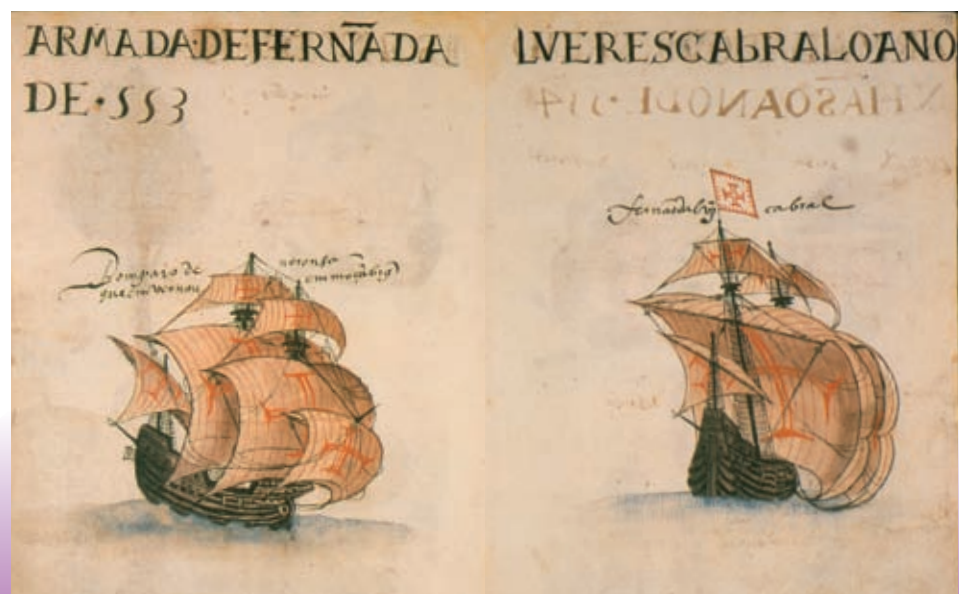 ARMADA·DE FERNÃDA LVERES CABRAL O ANO
DE·553
Dom paio de noronha
que envernou em moçãbiq̃
fernãdalvrz cabral